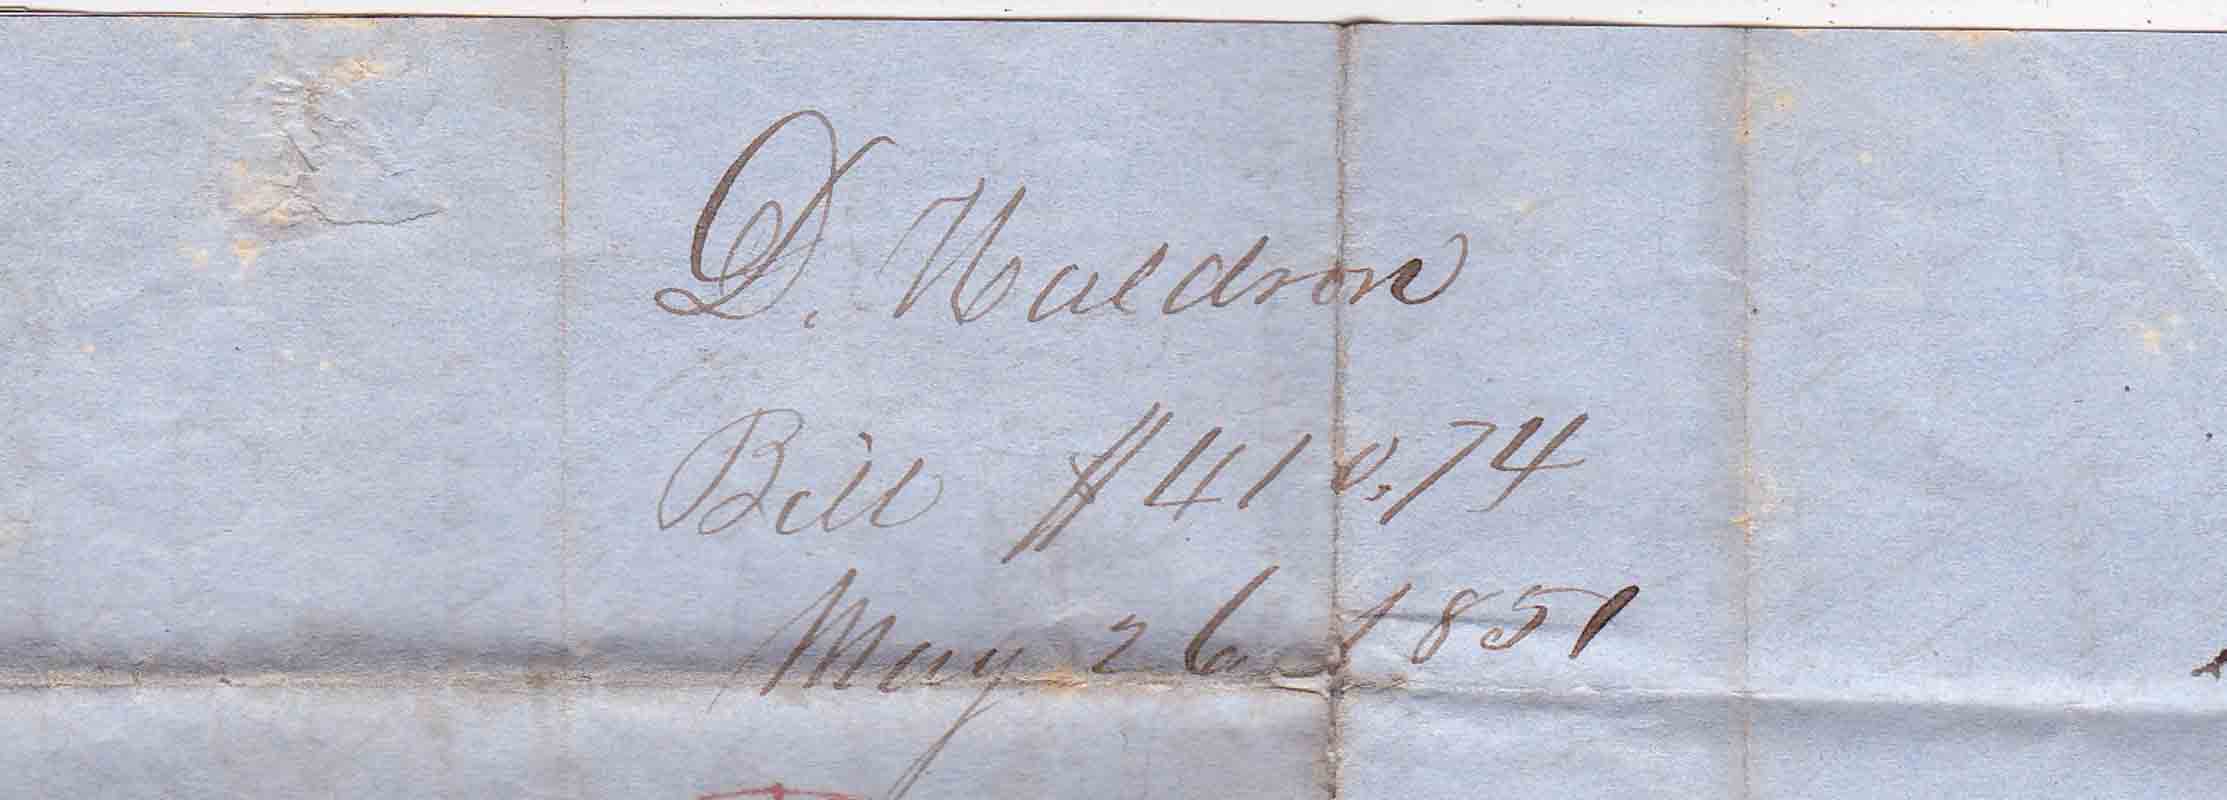 D. Waldron
Bill $410,74
May 26 1851